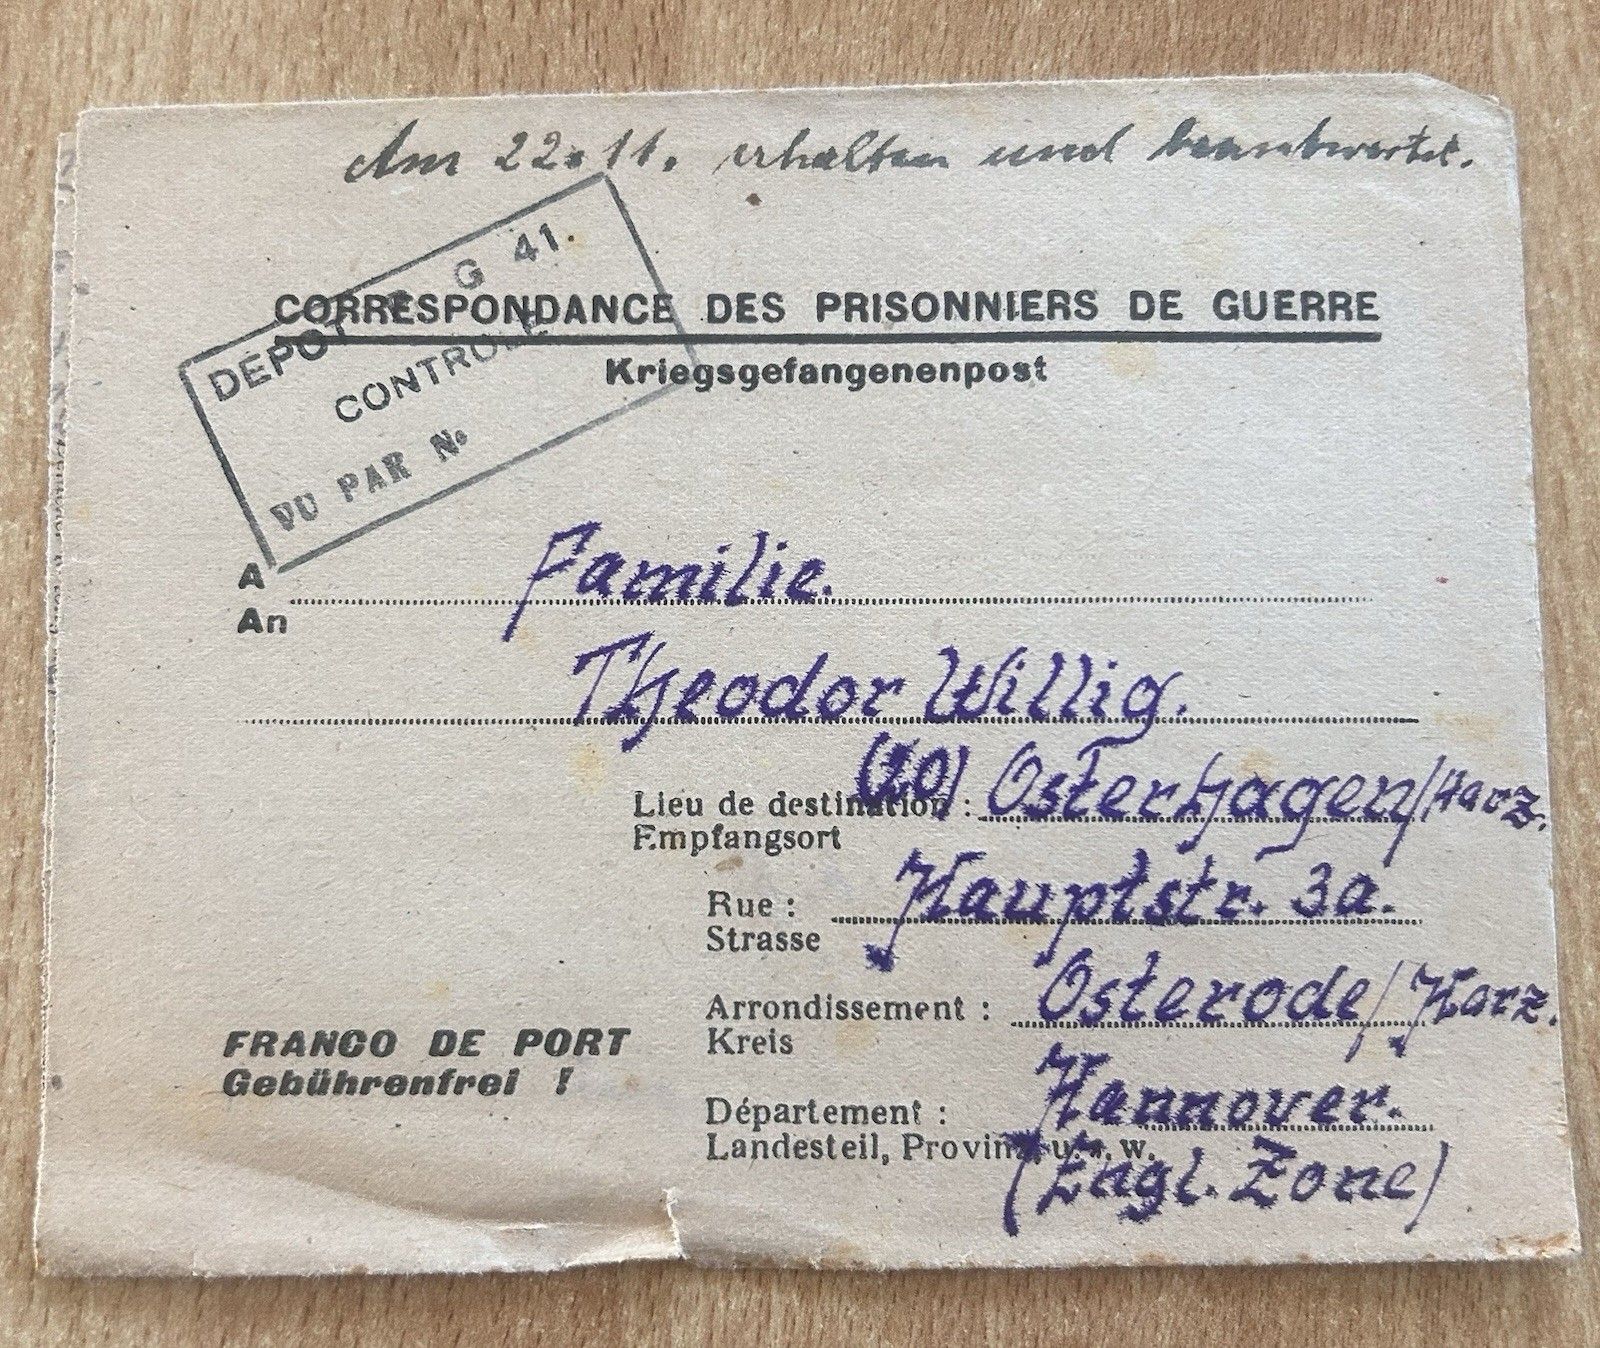 Am 22.11. erhalten und beantwortet.
DEPOT P G 41.
CONTROLE
VU PAR No
CORRESPONDANCE DES PRISONNIERS DE GUERRE
Kriegsgefangenenpost
A
An
Familie.
Theodor Willig.
Lieu de destination : (20) Osterhagen/Harz.
Empfangsort
Rue : Hauptstr. 3a.
Strasse
Arrondissement : Osterode/Harz.
Kreis
FRANCO DE PORT
Gebührenfrei !
Département : Hannover.
Landesteil, Provinz, u.s.w.
(Engl. Zone)